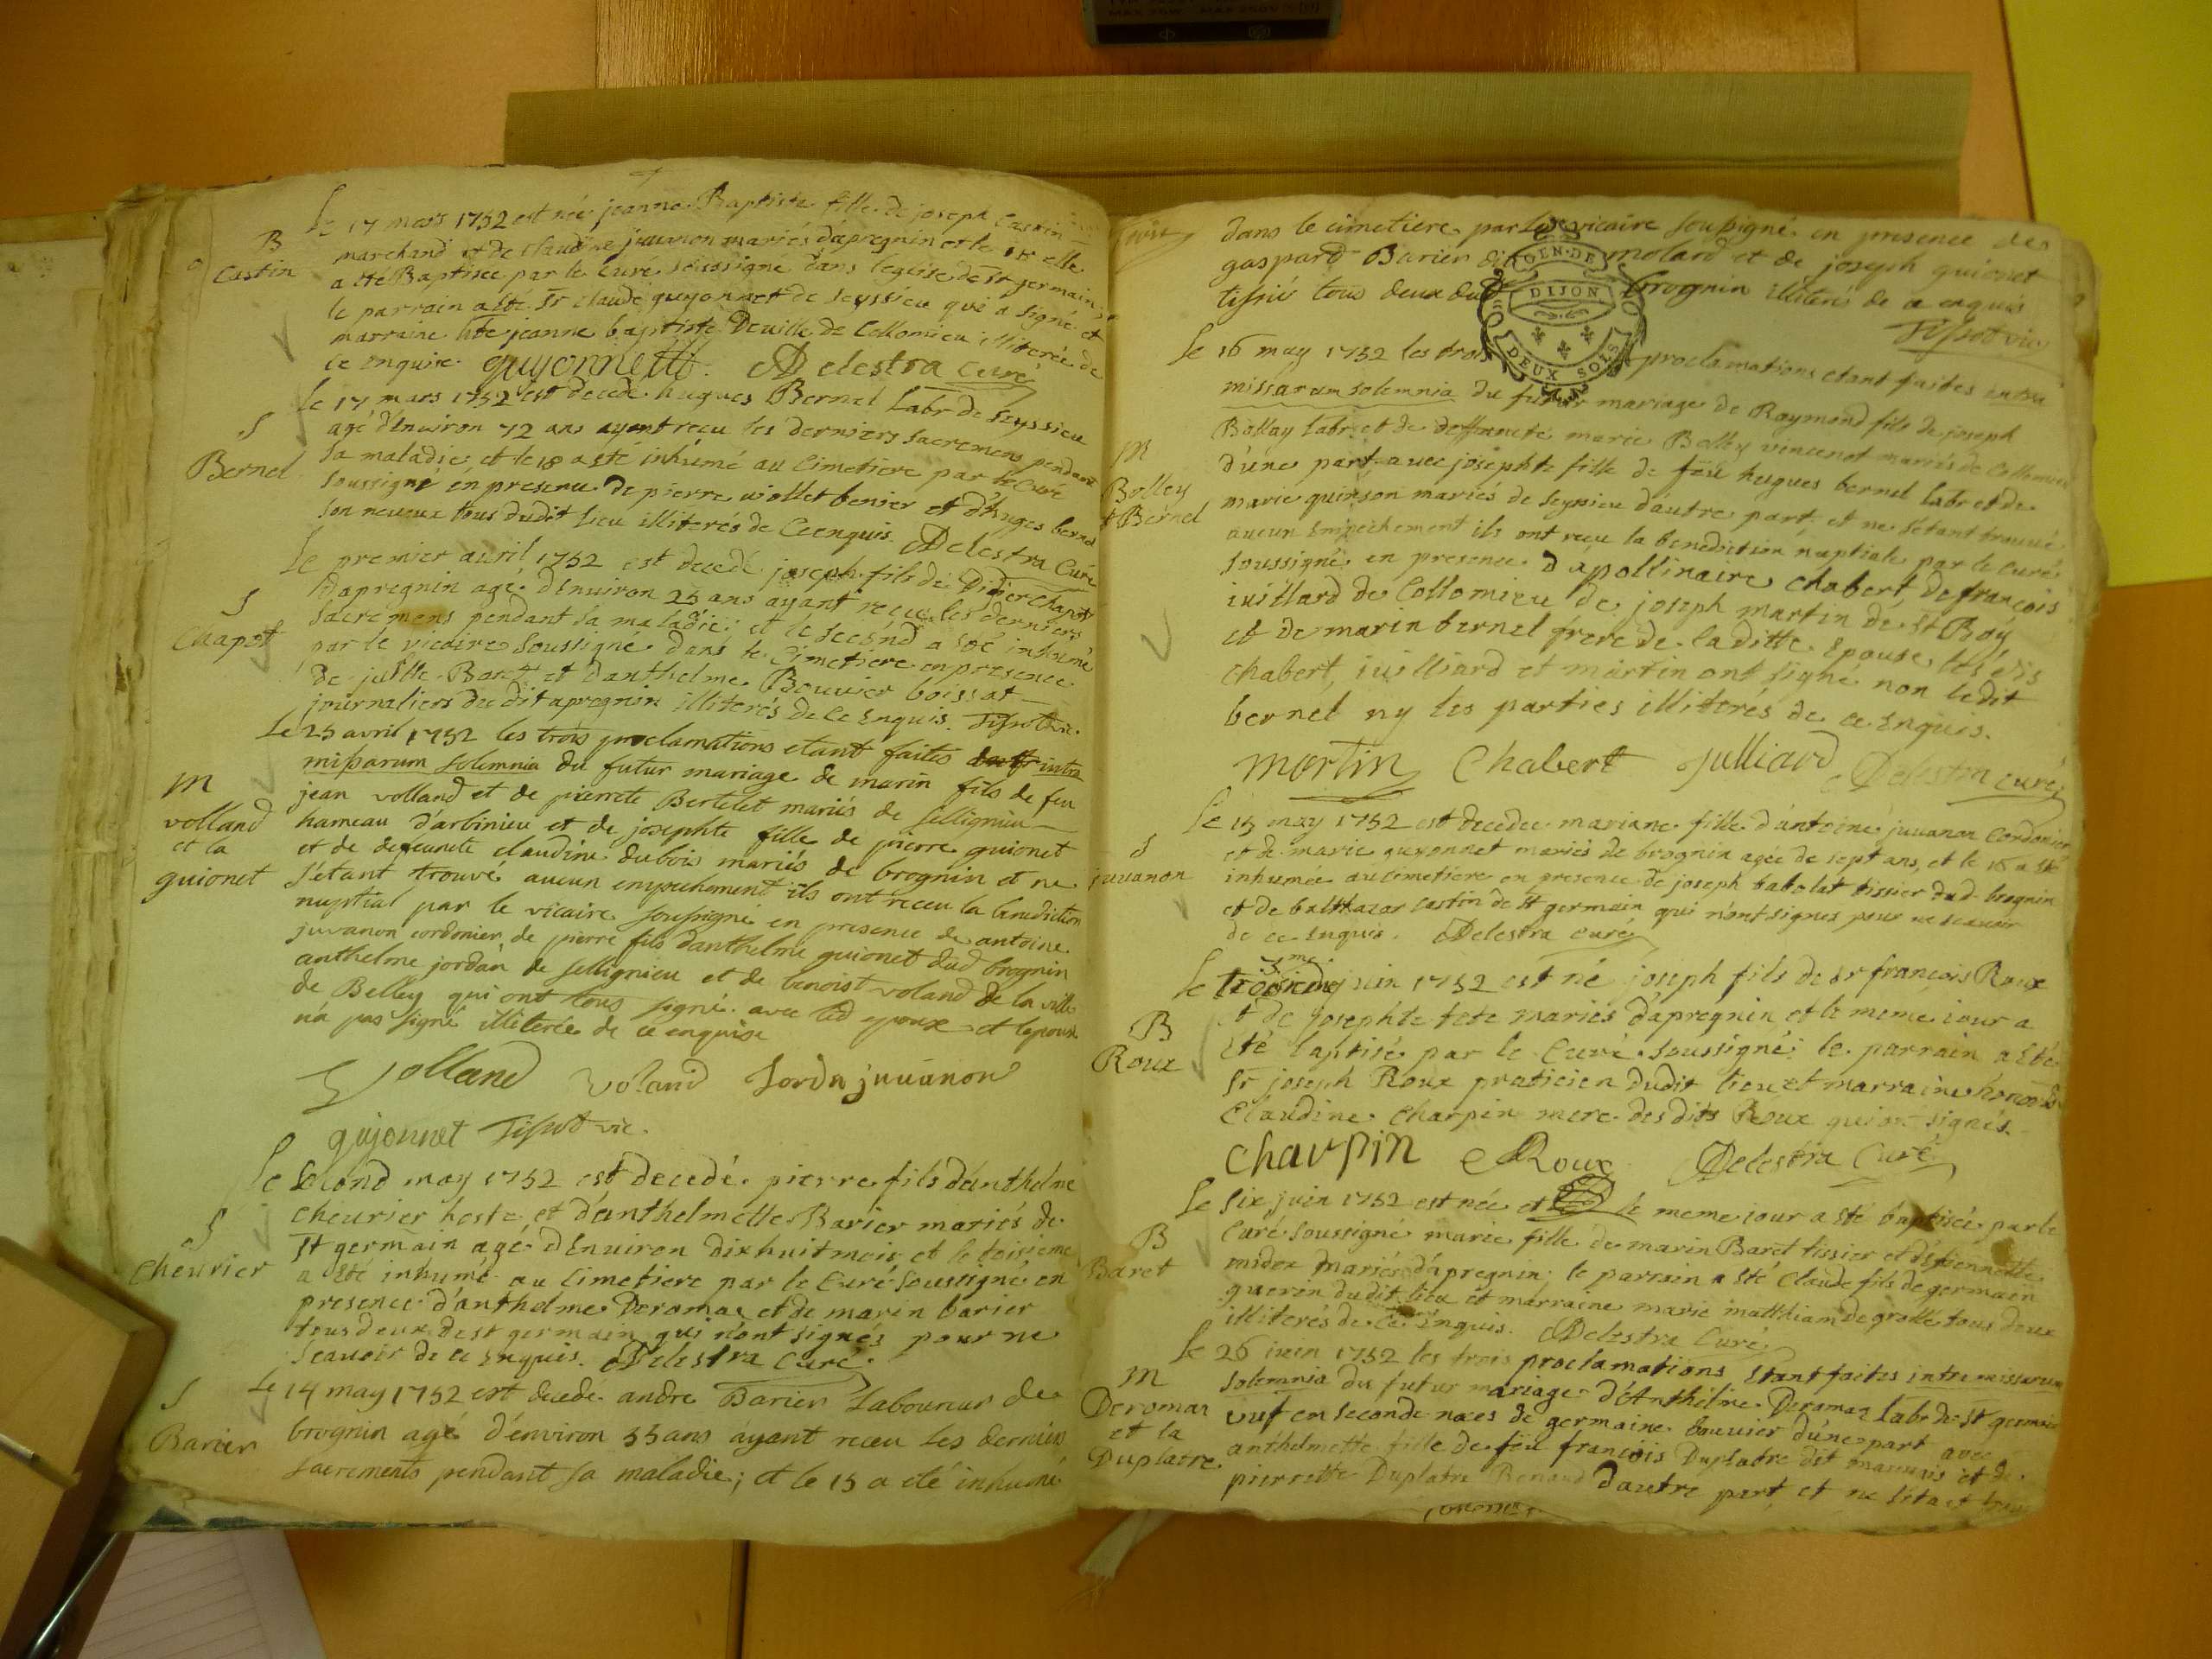 Le 17 mars 1752 est née jeanne Baptiste fille de joseph Castin
B
Castin
marchand et de claudine juuanon mariés dapregnin et le elle
a êté Baptisee par le Curé soussigné dans leglise de st germain,
le parrain a êté Sr claude guyonnet de seyssieu qui a signé et
marraine jeanne baptiste Deuille de Collomieu illiterée de
ce enquise. guyonnett. Delestra Curé
Le 17 mars 1752 est decedé hugues Bernel Labr de seyssieu
S
Bernel
agé d'Enuiron 72 ans ayant recu les derniers sacremens pendant
sa maladie et le 18 a êté inhumé au Cimetiere par le Curé
soussigné en presence de pierre uiollet benier et d'huges bernel
son neueux tous dudit lieu illiterés de Ce enquis. Delestra Curé
Le premier auril 1752 est decedé joseph fils de Didier Chapot
S
Chapot
dapregnin agé d'Enuiron 25 ans ayant reçu les derniers
sacremens pendant sa maladie; et le second a êté inhumé
par le vicaire soussigné dans le Cimetiere en presence
de et danthelme Bouuier boissat
journaliers du dit apregnin illiterés de Ce Enquis. Tissot vic.
Le 25 avril 1752 les trois proclamations etant faites intra
M
volland
et la
guionet
missarum solemnia du futur mariage de marin fils de feu
jean volland et de pierrete Bertelet mariés de sellignieu
hameau d'arbinieu et de josephte fille de pierre guionet
et de deffuncte claudine dubois mariés de brognin et ne
s'étant trouvé aucun empechement ils ont receu la benediction
nuptial par le vicaire soussigné en presence de antoine
juvanon cordonier, de pierre fils danthelme guionet dud brognin
anthelme jordan de sellignieu et de benoist voland de la ville
de Belley qui ont tous signé avec led epoux et lepouse
n'a pas signé illiterée de ce enquise
Volland voland Jordn juuanon
gujonnet Tissot vic.
Le second may 1752 est decedé pierre fils d'anthelme
S
cheurier
cheurier hoste et d'anthelmette Barier mariés de
st germain agé d'Enuiron dixhuit mois, et le troisieme
a êté inhumé au Cimetiere par le Curé soussigné en
presence d'anthelme Deromaz et de marin barier
tous deux de st germain qui n'ont signés pour ne
scauoir de ce Enquis. Delestra Curé.
Le 14 may 1752 est decedé andre Barier Laboureur de
S
Barier
brognin agé d'environ 55 ans ayant receu les derniers
sacrements pendant sa maladie; et le 15 a eté inhumé
dans le cimetiere par le vicaire soussigné en presence des
gaspard Barier dit molard et de joseph guionet
tissié tous deux du brognin illiterés de ce enquis
Tissot vic
GEN. DE
DIJON
DEUX SOLS
Le 16 may 1752 les trois proclamations etant faites
missarum solemnia du futur mariage de Raymond fils de joseph
M
Bolley
et Bernel
Bollay labr et de deffuncte marie Bolley vincenot mariés de Collomieu
d'une part avec josephte fille de feu hugues bernel labr et de
marie quinson mariés de seyssieu d'autre part, et ne sétant trouué
aucun Empechement ils ont recu la benediction nuptiale par le Curé
soussigné en presence d'apollinaire Chabert, de françois
iuillard de Collomieu de joseph martin de st Boÿ
et de marin bernel frere de laditte Epouse les dis
chabert, iuilliard et martin ont signé non ledit
bernel ny les parties illiterés de ce Enquis.
martin Chabert Julliard Delestra curé
Le 15 may 1752 est decedee mariane fille d'antoine juuanon cordonier
S
juuanon
et de marie guyonnet mariés de brognin agée de sept ans, et le 16 a êté
inhumée au Cimetiere en presence de joseph babolat tissier dud. brognin
et de balthazar castin de st germain qui n'ont signés pour ne scauoir
de ce Enquis. Delestra curé
3me
Le juin 1752 est né joseph fils de Sr françois Roux
B
Roux
et de josephte tete mariés d'apregnin et le meme iour a
Eté baptisé par le Curé soussigné; le parrain a êté
Sr joseph Roux praticien dudit lieu et marraine
Claudine Charpin mere des dits Roux qui ont signés.
Charpin Roux Delestra Curé
Le six juin 1752 est née et le meme iour a êté baptisée par le
B
Baret
Curé soussigné marie fille de marin Baret tissier et d'étiennette
midex mariés d'apregnin; le parrain a êté Claude fils de germain
guerin dudit lieu et marraine marie matthian de tous deux
illiterés de ce Enquis. Delestra Curé
Le 26 iuin 1752 les trois proclamations Etant faites intra missarum
M
Deromaz
et la
Duplatre
solemnia du futur mariage d'Anthelme Deromaz Labr de st germain
uuf en seconde noces de germaine bouuier d'une part avec
anthelmette fille de feu françois Duplatre dit mauuais et de
pierrette Duplatre Renaud d'autre part, et ne s'étant